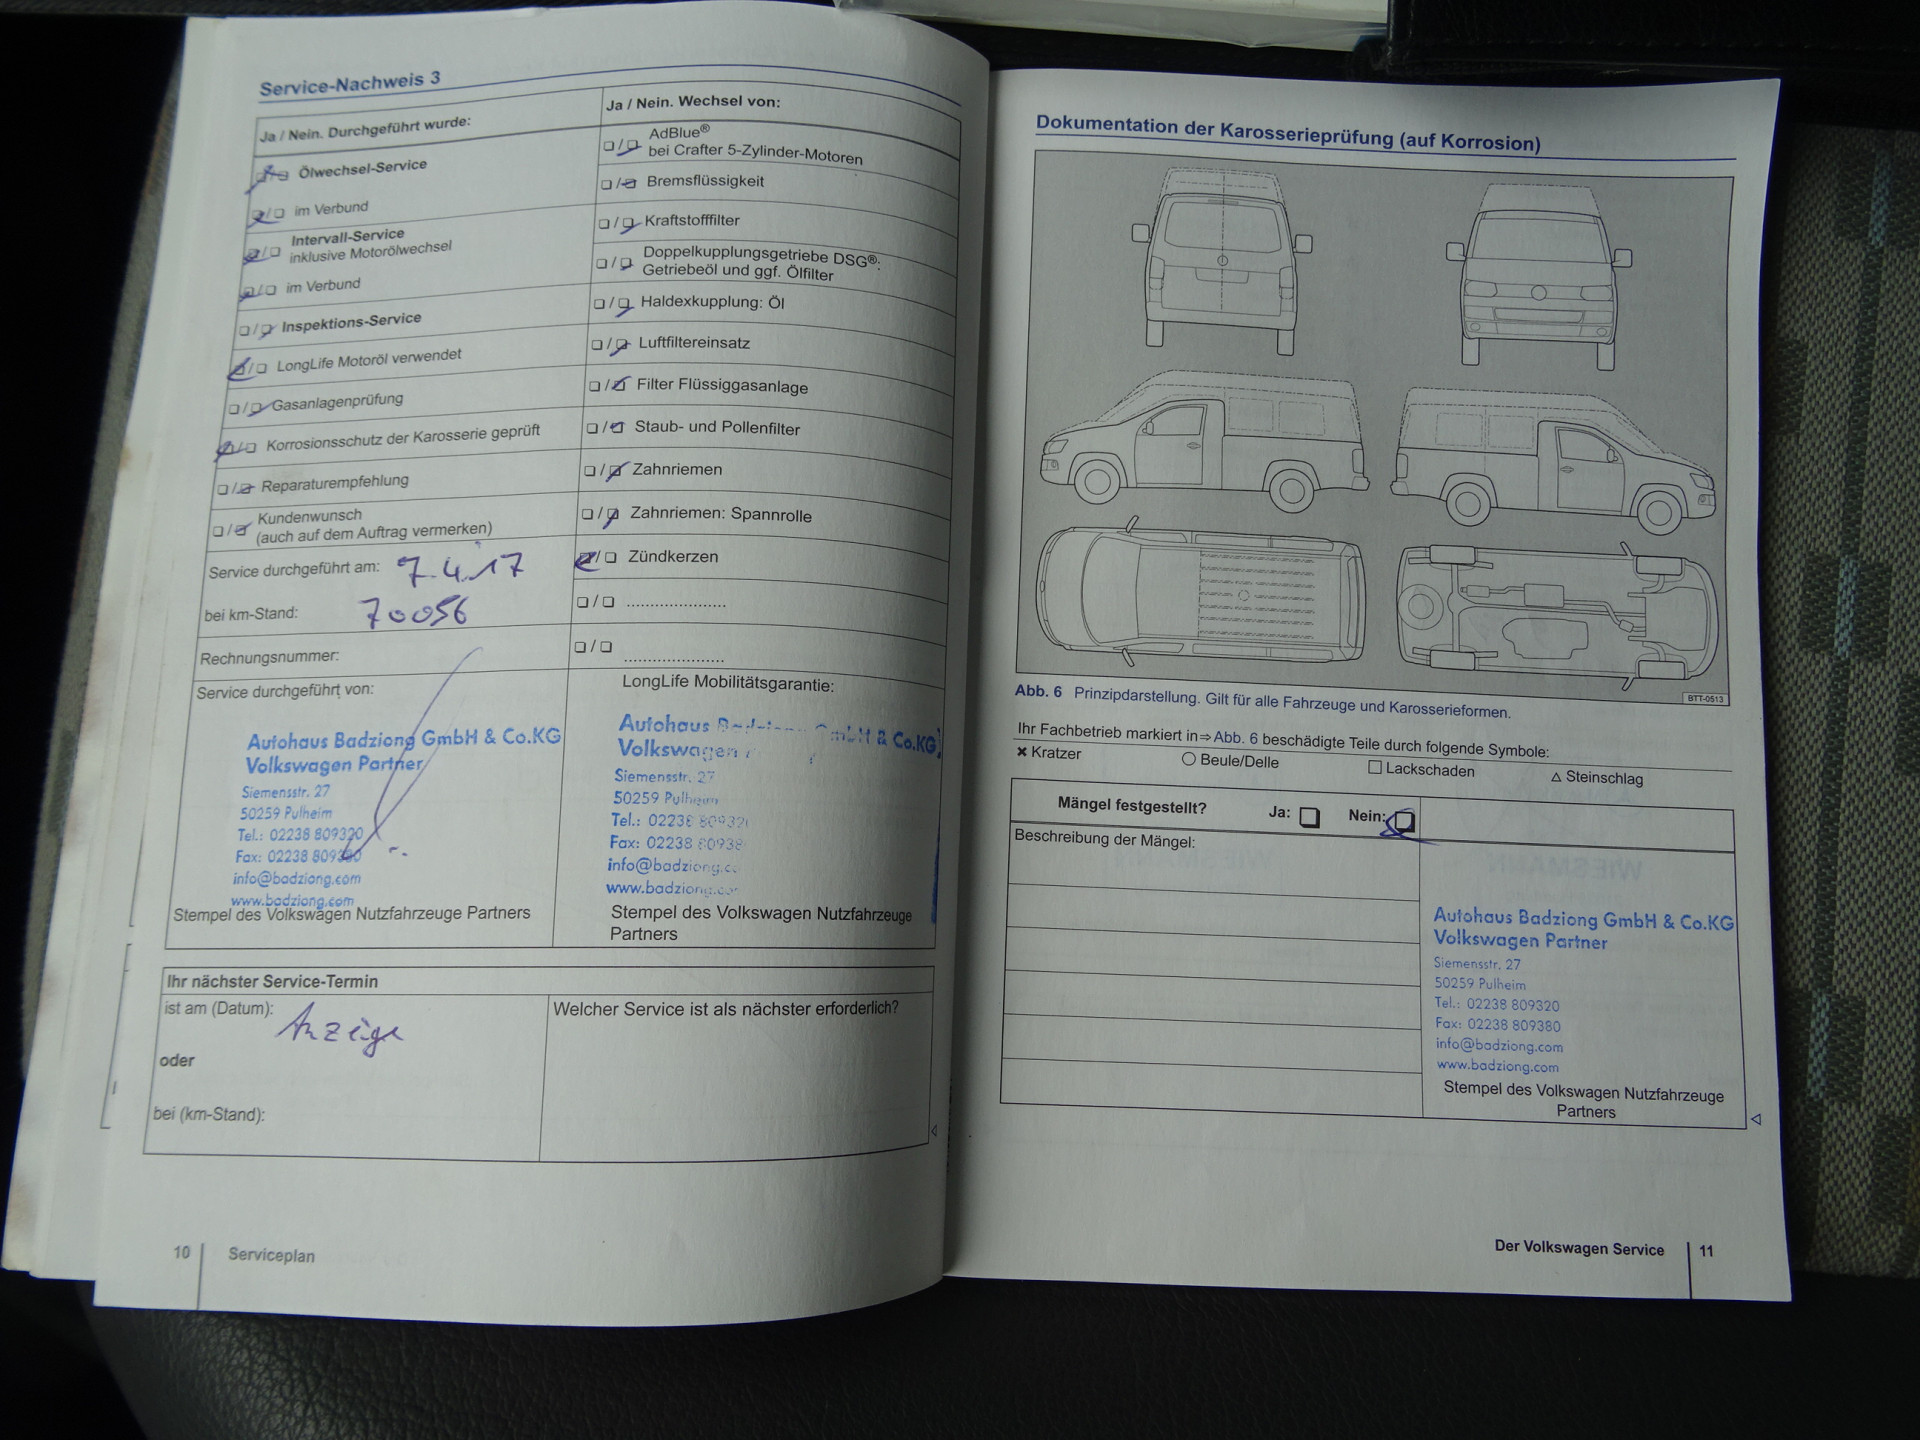 Service-Nachweis 3
Ja / Nein. Durchgeführt wurde:
Ölwechsel-Service
im Verbund
Intervall-Service
inklusive Motorölwechsel
im Verbund
Inspektions-Service
LongLife Motoröl verwendet
Gasanlagenprüfung
Korrosionsschutz der Karosserie geprüft
Reparaturempfehlung
Kundenwunsch
(auch auf dem Auftrag vermerken)
Service durchgeführt am: 7.4.17
bei km-Stand: 70056
Rechnungsnummer:
Service durchgeführt von:
Autohaus Badziong GmbH & Co.KG
Volkswagen Partner
Siemensstr. 27
50259 Pulheim
Tel.: 02238 809320
Fax: 02238 809380
info@badziong.com
www.badziong.com
Stempel des Volkswagen Nutzfahrzeuge Partners
Ja / Nein. Wechsel von:
AdBlue®
bei Crafter 5-Zylinder-Motoren
Bremsflüssigkeit
Kraftstofffilter
Doppelkupplungsgetriebe DSG®:
Getriebeöl und ggf. Ölfilter
Haldexkupplung: Öl
Luftfiltereinsatz
Filter Flüssiggasanlage
Staub- und Pollenfilter
Zahnriemen
Zahnriemen: Spannrolle
Zündkerzen
LongLife Mobilitätsgarantie:
Autohaus GmbH & Co.KG
Volkswagen
Siemensstr. 27
50259 Pulheim
Tel.: 02238
Fax: 02238
Stempel des Volkswagen Nutzfahrzeuge
Partners
Ihr nächster Service-Termin
ist am (Datum): Anzeige
oder
bei (km-Stand):
Welcher Service ist als nächster erforderlich?
10 Serviceplan
Dokumentation der Karosserieprüfung (auf Korrosion)
BTT-0513
Abb. 6 Prinzipdarstellung. Gilt für alle Fahrzeuge und Karosserieformen.
Ihr Fachbetrieb markiert in⇒Abb. 6 beschädigte Teile durch folgende Symbole:
× Kratzer ○ Beule/Delle □ Lackschaden △ Steinschlag
Mängel festgestellt? Ja: Nein:
Beschreibung der Mängel:
Autohaus Badziong GmbH & Co.KG
Volkswagen Partner
Siemensstr. 27
50259 Pulheim
Tel.: 02238 809320
Fax: 02238 809380
info@badziong.com
www.badziong.com
Stempel des Volkswagen Nutzfahrzeuge
Partners
Der Volkswagen Service 11